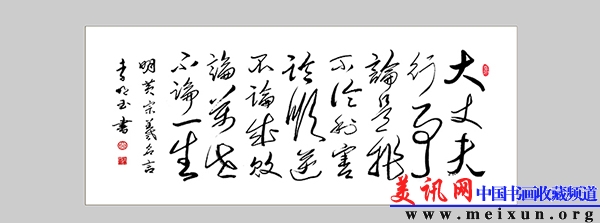 大丈夫
行事
論是非
不論利害
論順逆
不論成敗
論萬世
不論一生
明黄宗羲名言
李明玉書
美讯网 中国书画收藏频道
www.meixun.org